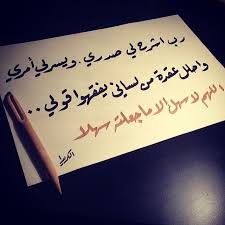 رب اشرح لي صدري . ويسر لي أمري
واحلل عقدة من لساني يفقهوا قولي ..
اللهم لا سهل الا ما جعلته سهلا